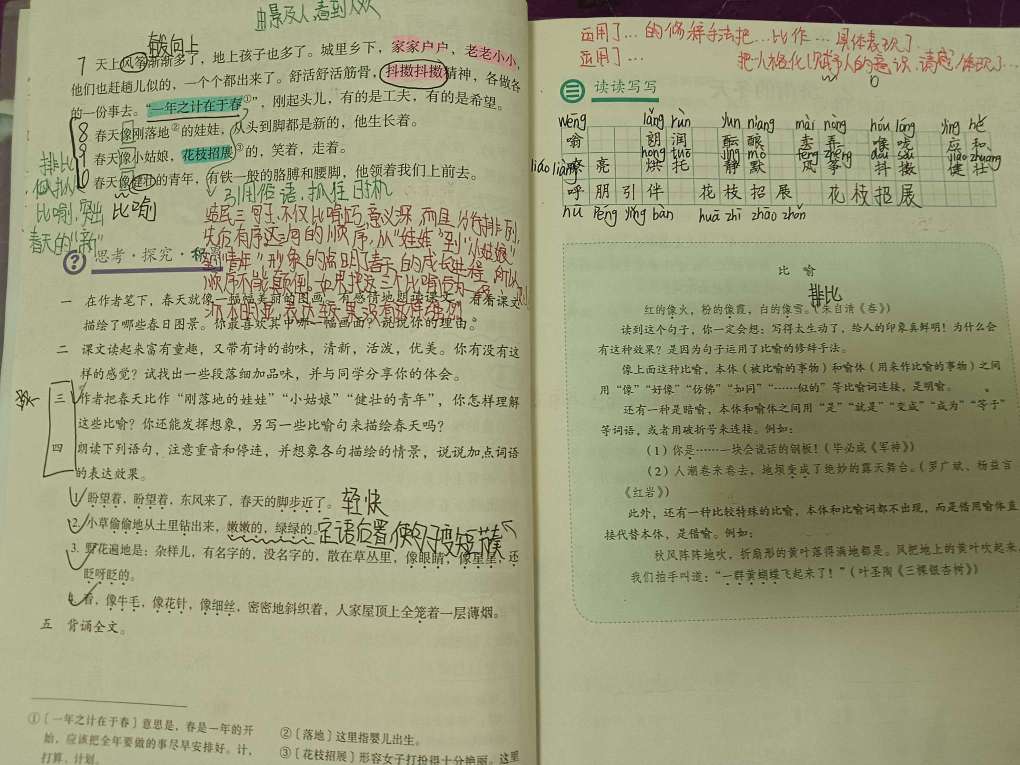 由景及人,看到人欢
7 天上风筝渐渐多了，地上孩子也多了。城里乡下，家家户户，老老小小，
他们也赶趟儿似的，一个个都出来了。舒活舒活筋骨，抖擞抖擞精神，各做各
的一份事去。“一年之计在于春①”，刚起头儿，有的是工夫，有的是希望。
8 春天像刚落地②的娃娃，从头到脚都是新的，他生长着。
9 春天像小姑娘，花枝招展③的，笑着，走着。
春天像健壮的青年，有铁一般的胳膊和腰脚，他领着我们上前去。
排比
比喻,突出
春天的“新”
比喻
引用俗语,抓住时机
思考·探究·积累
一 在作者笔下，春天就像一幅幅美丽的图画。有感情地朗读课文，看看课文
描绘了哪些春日图景。你最喜欢其中哪一幅画面？说说你的理由。
二 课文读起来富有童趣，又带有诗的韵味，清新，活泼，优美。你有没有这
样的感觉？试找出一些段落细加品味，并与同学分享你的体会。
三 作者把春天比作“刚落地的娃娃”“小姑娘”“健壮的青年”，你怎样理解
这些比喻？你还能发挥想象，另写一些比喻句来描绘春天吗？
四 朗读下列语句，注意重音和停连，并想象各句描绘的情景，说说加点词语
的表达效果。
1. 盼望着，盼望着，东风来了，春天的脚步近了。 轻快
2. 小草偷偷地从土里钻出来，嫩嫩的，绿绿的。 定语后置,使句子变短
3. 野花遍地是：杂样儿，有名字的，没名字的，散在草丛里，像眼睛，像星星，还
眨呀眨的。
4. 看，像牛毛，像花针，像细丝，密密地斜织着，人家屋顶上全笼着一层薄烟。
五 背诵全文。
①〔一年之计在于春〕意思是，春是一年的开
始，应该把全年要做的事尽早安排好。计，
打算，计划。
②〔落地〕这里指婴儿出生。
③〔花枝招展〕形容女子打扮得十分艳丽。这里
运用了…的修辞手法把…比作…具体表现了
运用了…
把…人格化
三 读读写写
wēng lǎng rùn yùn niàng mài nòng hóu lóng yìng hè
嗡 朗 润 酝 酿 卖 弄 喉 咙 应 和
liáo liàng hōng tuō jìng mò fēng zhēng dǒu sǒu jiàn zhuàng
嘹 亮 烘 托 静 默 风 筝 抖 擞 健 壮
呼 朋 引 伴 花 枝 招 展 花 枝 招 展
hū péng yǐn bàn huā zhī zhāo zhǎn
比 喻
排比
红的像火，粉的像霞，白的像雪。（朱自清《春》）
读到这个句子，你一定会想：写得太生动了，给人的印象真鲜明！为什么会
有这种效果？是因为句子运用了比喻的修辞手法。
像上面这种比喻，本体（被比喻的事物）和喻体（用来作比喻的事物）之间
用“像”“好像”“仿佛”“如同”“……似的”等比喻词连接，是明喻。
还有一种是暗喻，本体和喻体之间用“是”“就是”“变成”“成为”“等于”
等词语，或者用破折号来连接。例如：
（1）你是……一块会说话的钢板！（毕必成《军神》）
（2）人潮卷来卷去，地坝变成了绝妙的露天舞台。（罗广斌、杨益言
《红岩》）
此外，还有一种比较特殊的比喻，本体和比喻词都不出现，而是借用喻体直
接代替本体，是借喻。例如：
秋风阵阵地吹，折扇形的黄叶落得满地都是。风把地上的黄叶吹起来，
我们拍手叫道：“一群黄蝴蝶飞起来了！”（叶圣陶《三棵银杏树》）